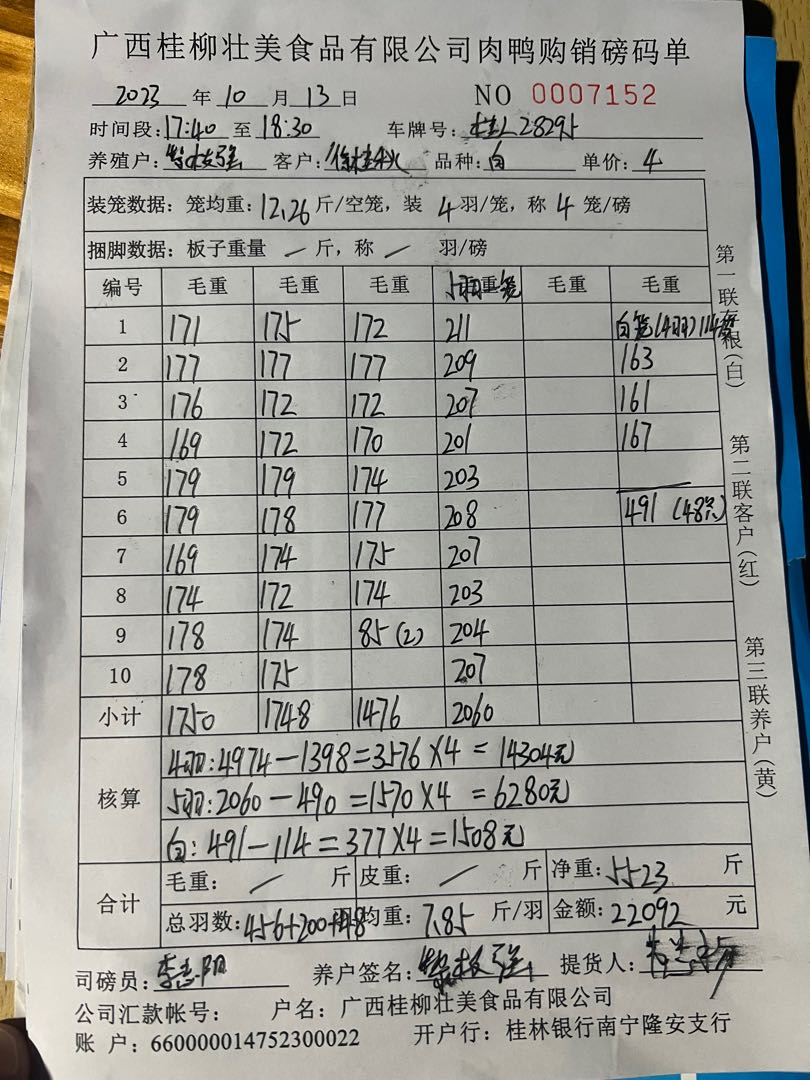 广西桂柳壮美食品有限公司肉鸭购销磅码单
2023 年 10 月 13 日 NO 0007152
时间段:17:40 至 18:30 车牌号:桂L28295
养殖户: 客户: 品种:白 单价:4
装笼数据: 笼均重:12.26 斤/空笼,装 4 羽/笼,称 4 笼/磅
捆脚数据: 板子重量 — 斤,称 — 羽/磅
编号 毛重 毛重 毛重 5羽重笼 毛重 毛重
1 171 175 172 211 白笼(4羽)114
2 177 177 177 209 163
3 176 172 172 207 161
4 169 172 170 201 167
5 179 179 174 203
6 179 178 177 208 491 (48只)
7 169 174 175 207
8 174 172 174 203
9 178 174 85(2) 204
10 178 175 207
小计 1750 1748 1476 2060
核算
4羽:4974-1398=3576×4=14304元
5羽:2060-490=1570×4=6280元
白:491-114=377×4=1508元
合计
毛重: / 斤 皮重: / 斤 净重:5523 斤
总羽数:456+200+48 均重:7.85 斤/羽 金额:22092 元
司磅员:李志阳 养户签名: 提货人:
公司汇款帐号: 户名:广西桂柳壮美食品有限公司
账 户:660000014752300022 开户行:桂林银行南宁隆安支行
第一联存根(白)
第二联客户(红)
第三联养户(黄)